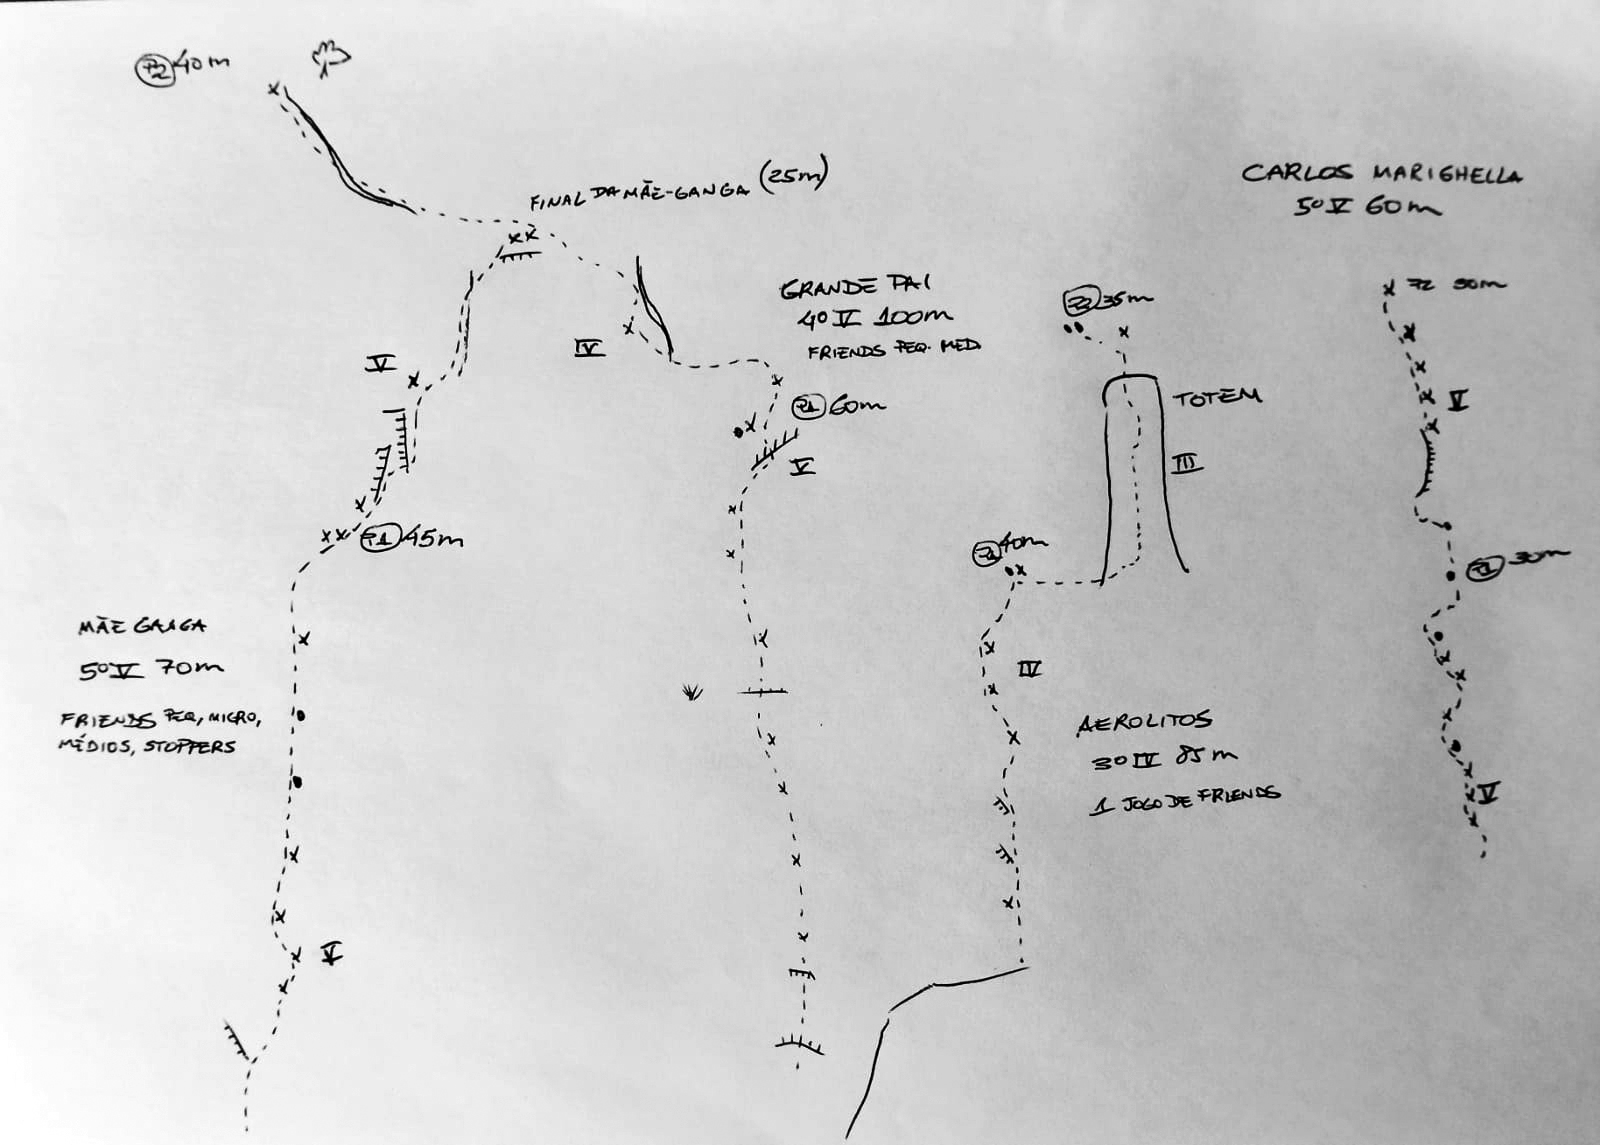 P2 40m
FINAL DA MÃE-GANGA (25m)
V
P1 45m
MÃE GANGA
5º V 70m
FRIENDS PEQ, MICRO,
MÉDIOS, STOPPERS
V
GRANDE PAI
4º V 100m
FRIENDS PEQ. MED.
IV
P1 60m
V
P2 35m
TOTEM
III
P1 40m
IV
AEROLITOS
3º IV 85m
1 JOGO DE FRIENDS
CARLOS MARIGHELLA
5º V 60m
P2 30m
V
P1 30m
V